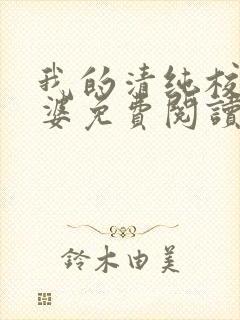 我的清純校
婆免費閱讀
鈴木由美